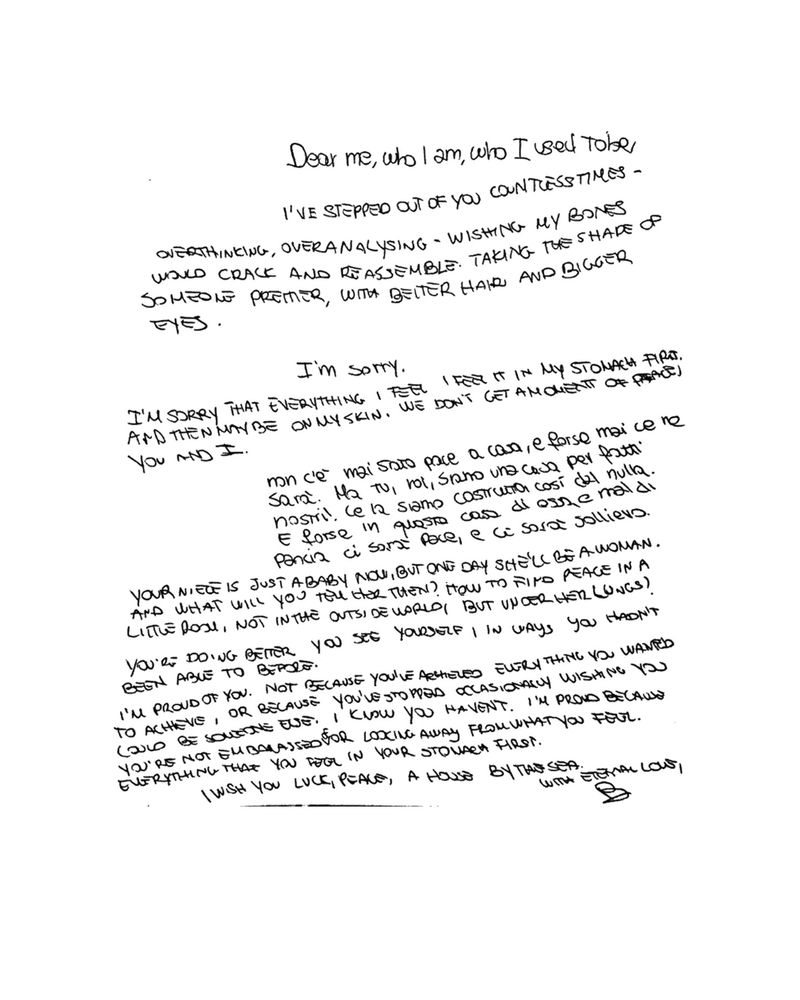 Dear me, who I am, who I used to be,
I'VE STEPPED OUT OF YOU COUNTLESS TIMES -
OVERTHINKING, OVERANALYSING - WISHING MY BONES
WOULD CRACK AND REASSEMBLE. TAKING THE SHAPE OF
SOMEONE PRETTIER, WITH BETTER HAIR AND BIGGER
EYES.
I'm sorry.
I'M SORRY THAT EVERYTHING I FEEL I FEEL IT IN MY STOMACH FIRST.
AND THEN MAYBE ON MY SKIN. WE DON'T GET A MOMENT OF PEACE,
YOU AND I.
non c'è mai stata pace a casa, e forse mai ce ne
sarà. Ma tu, noi, siamo una casa per fatti
nostri. Ce la siamo costruita così dal nulla.
E forse in questa casa di ossa e mal di
pancia ci sarà pace, e ci sarà sollievo.
YOUR NIECE IS JUST A BABY NOW, BUT ONE DAY SHE'LL BE A WOMAN.
AND WHAT WILL YOU TELL HER THEN? HOW TO FIND PEACE IN A
LITTLE ROOM, NOT IN THE OUTSIDE WORLD, BUT UNDER HER LUNGS?
YOU'RE DOING BETTER. YOU SEE YOURSELF, IN WAYS YOU HADN'T
BEEN ABLE TO BEFORE.
I'M PROUD OF YOU. NOT BECAUSE YOU'VE ACHIEVED EVERYTHING YOU WANTED
TO ACHIEVE, OR BECAUSE YOU'VE STOPPED OCCASIONALLY WISHING YOU
COULD BE SOMEONE ELSE. I KNOW YOU HAVENT. I'M PROUD BECAUSE
YOU'RE NOT EMBARASSED FOR LOOKING AWAY FROM WHAT YOU FEEL.
EVERYTHING THAT YOU FEEL IN YOUR STOMACH FIRST.
I WISH YOU LUCK, PEACE, A HOUSE BY THE SEA.
WITH ETERNAL LOVE,
B